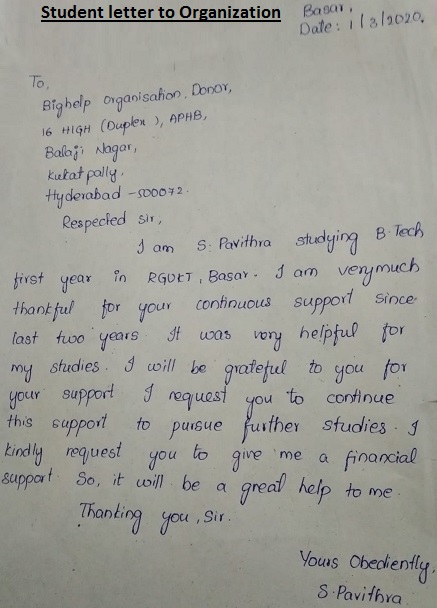 Student letter to Organization
Basar,
Date: 1/3/2020.
To,
Bighelp organisation, Donor,
16 HIGH (Duplex), APHB,
Balaji Nagar,
Kukatpally,
Hyderabad -500072.
Respected sir,
I am S. Pavithra studying B-Tech
first year in RGUKT, Basar. I am verymuch
thankful for your continuous support since
last two years. It was very helpful for
my studies. I will be grateful to you for
your support I request you to continue
this support to pursue further studies. I
kindly request you to give me a financial
support. So, it will be a great help to me.
Thanking you, Sir.
Yours Obediently,
S.Pavithra